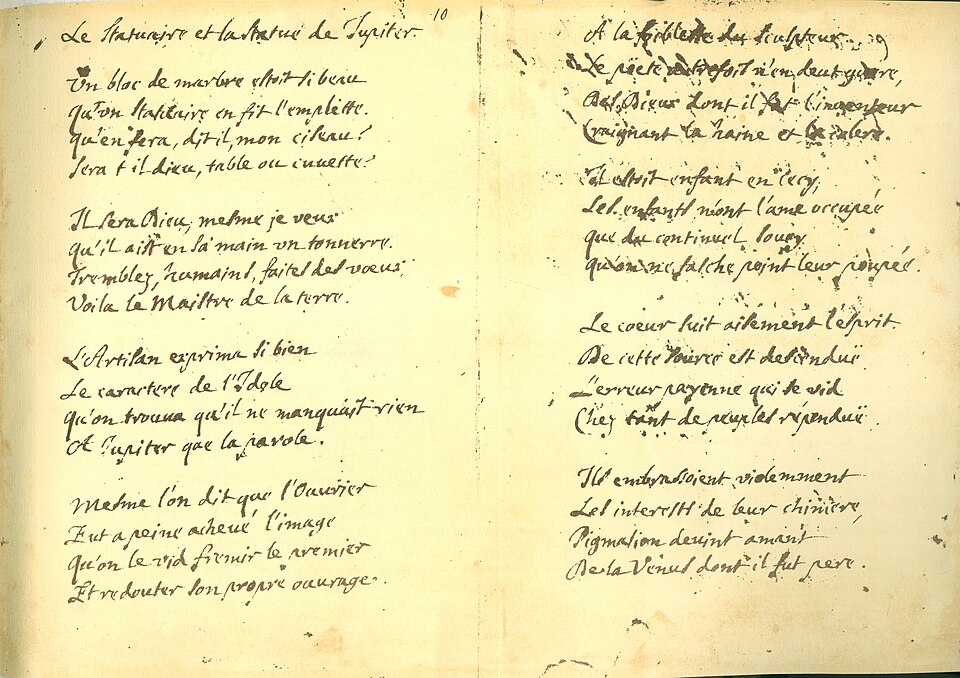 10
Le Statuaire et la statue de Jupiter
Un bloc de marbre estoit si beau
Qu'un Statüaire en fit l'emplette.
Qu'en fera, dit il, mon ciseau?
Sera t il dieu, table ou cuvette?
Il sera Dieu; mesme je veux
Qu'il ait en sa main un tonnerre.
Tremblez, humains, faites des vœux;
Voila le Maistre de la terre.
L'Artisan exprima si bien
Le caractere de l'Idole
Qu'on trouva qu'il ne manquait rien
A Jupiter que la parole.
Mesme l'on dit que l'Ouvrier
Eut a peine achevé l'image
Qu'on le vid fremir le premier
Et redouter son propre ouvrage.
A la foiblesse du sculpteur
Le poete autrefois n'en deut guere,
Des Dieux dont il fut l'inventeur
Craignant la haine et la colere.
Il estoit enfant en cecy;
Les enfants n'ont l'ame occupée
Que du continuel soucy
Qu'on ne fasche point leur poupée.
Le coeur suit aisement l'esprit.
De cette source est descenduë
L'erreur payenne qui se vid
Chez tant de peuples répenduë.
Ils embrassoient videmment
Les interests de leur chimere,
Pigmalion devint amant
De la Venus dont il fut pere.